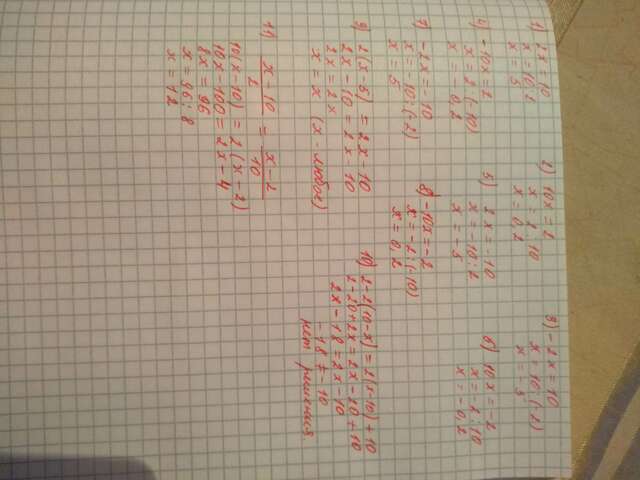 1) 2x = 10
x = 10:2
x = 5
2) 10x = 2
x = 2:10
x = 0,2
3) -2x = 10
x = 10:(-2)
x = -5
4) -10x = 2
x = 2:(-10)
x = -0,2
5) 2x = -10
x = -10:2
x = -5
6) 10x = -2
x = -2:10
x = -0,2
7) -2x = -10
x = -10:(-2)
x = 5
8) -10x = -2
x = -2:(-10)
x = 0,2
9) 2(x-5) = 2x-10
2x-10 = 2x-10
2x = 2x
x = x (x - любое)
10) 2-2(10-x) = 2(x-10)+10
2-20+2x = 2x-20+10
2x-18 = 2x-10
-18 ≠ -10
нет решения
11) x-10/2 = x-2/10
10(x-10) = 2(x-2)
10x-100 = 2x-4
8x = 96
x = 96:8
x = 12